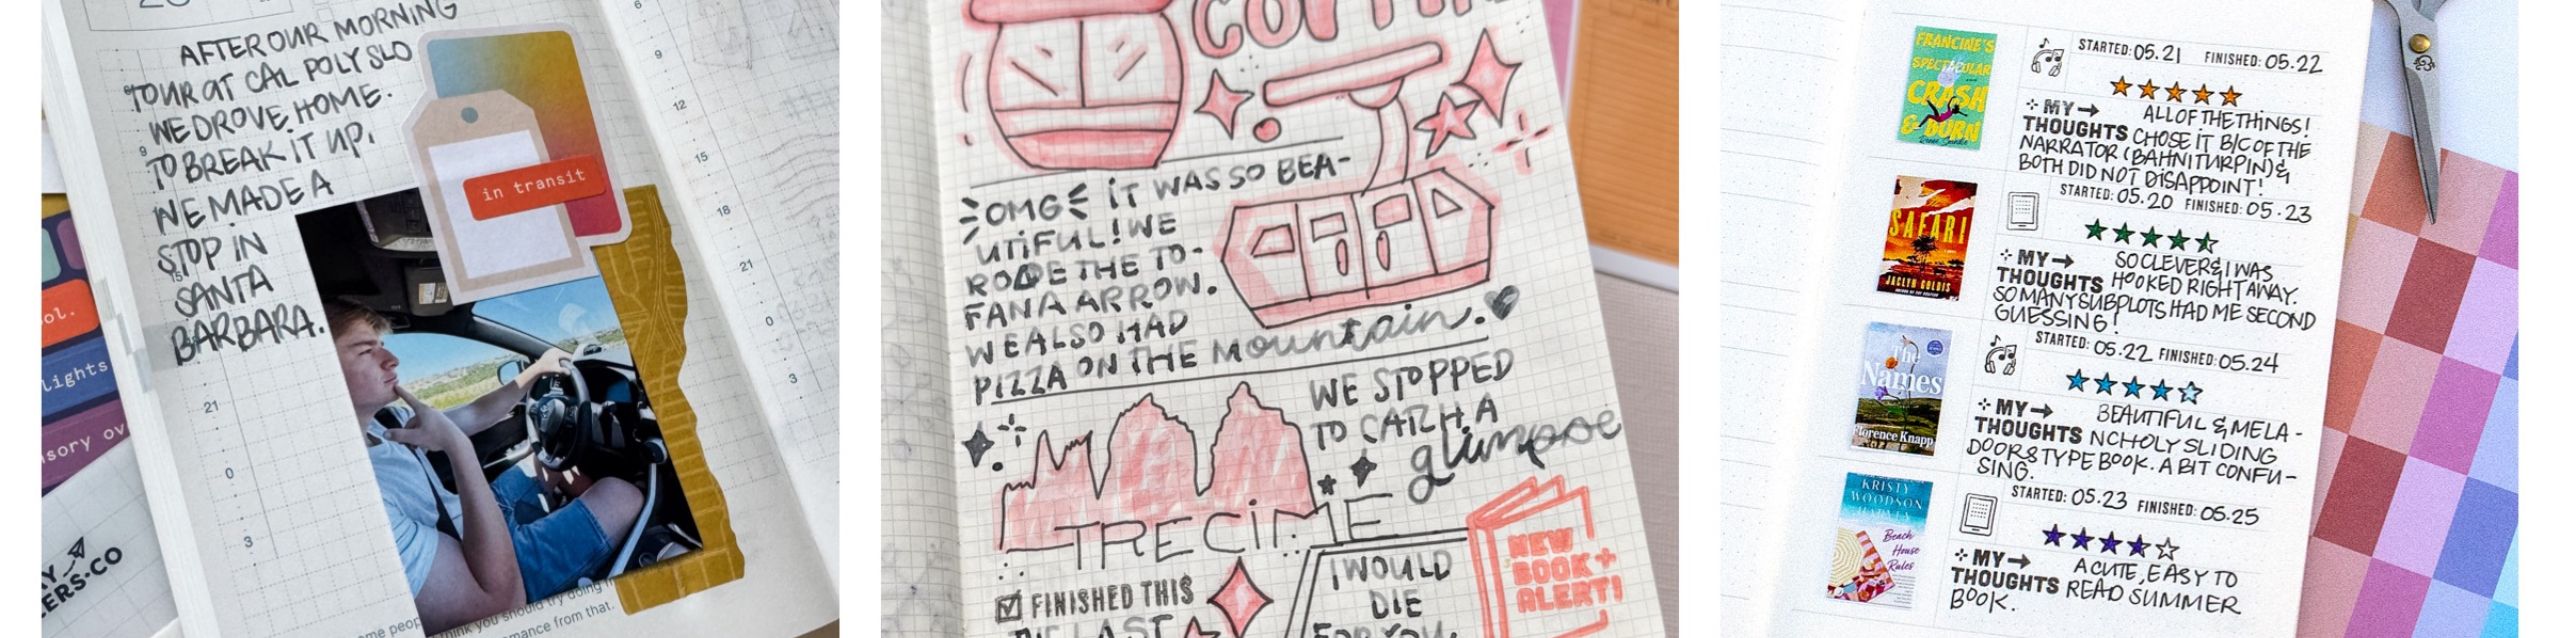 AFTER OUR MORNING
TOUR AT CAL POLY SLO
WE DROVE HOME.
TO BREAK IT UP,
WE MADE A
STOP IN
SANTA
BARBARA.
in transit
6
9
12
15
18
21
0
3
9
15
21
0
3
ol.
lights
sory ov
ERS.CO
think you should try doing
mance from that.
OMG IT WAS SO BEA-
UTIFUL! WE
RODE THE TO-
FANA ARROW.
WE ALSO HAD
PIZZA ON THE mountain.
WE STOPPED
TO CATCH A
glimpse
TRECIME
FINISHED THIS
LAST
I WOULD
DIE
FOR YOU
NEW
BOOK +
ALERT!
FRANCINE'S
SPECTACULAR
CRASH
& BURN
STARTED: 05.21 FINISHED: 05.22
MY → ALL OF THE THINGS!
THOUGHTS CHOSE IT B/C OF THE
NARRATOR (BAHNI TURPIN) &
BOTH DID NOT DISAPPOINT!
SAFARI
JACLYN GOLDIS
STARTED: 05.20 FINISHED: 05.23
MY → SO CLEVER & I WAS
THOUGHTS HOOKED RIGHT AWAY.
SO MANY SUBPLOTS HAD ME SECOND
GUESSING!
The
Names
Florence Knapp
STARTED: 05.22 FINISHED: 05.24
MY → BEAUTIFUL & MELA-
THOUGHTS NCHOLY SLIDING
DOORS TYPE BOOK. A BIT CONFU-
SING.
KRISTY
WOODSON
Beach
House
Rules
STARTED: 05.23 FINISHED: 05.25
MY → A CUTE, EASY TO
THOUGHTS READ SUMMER
BOOK.